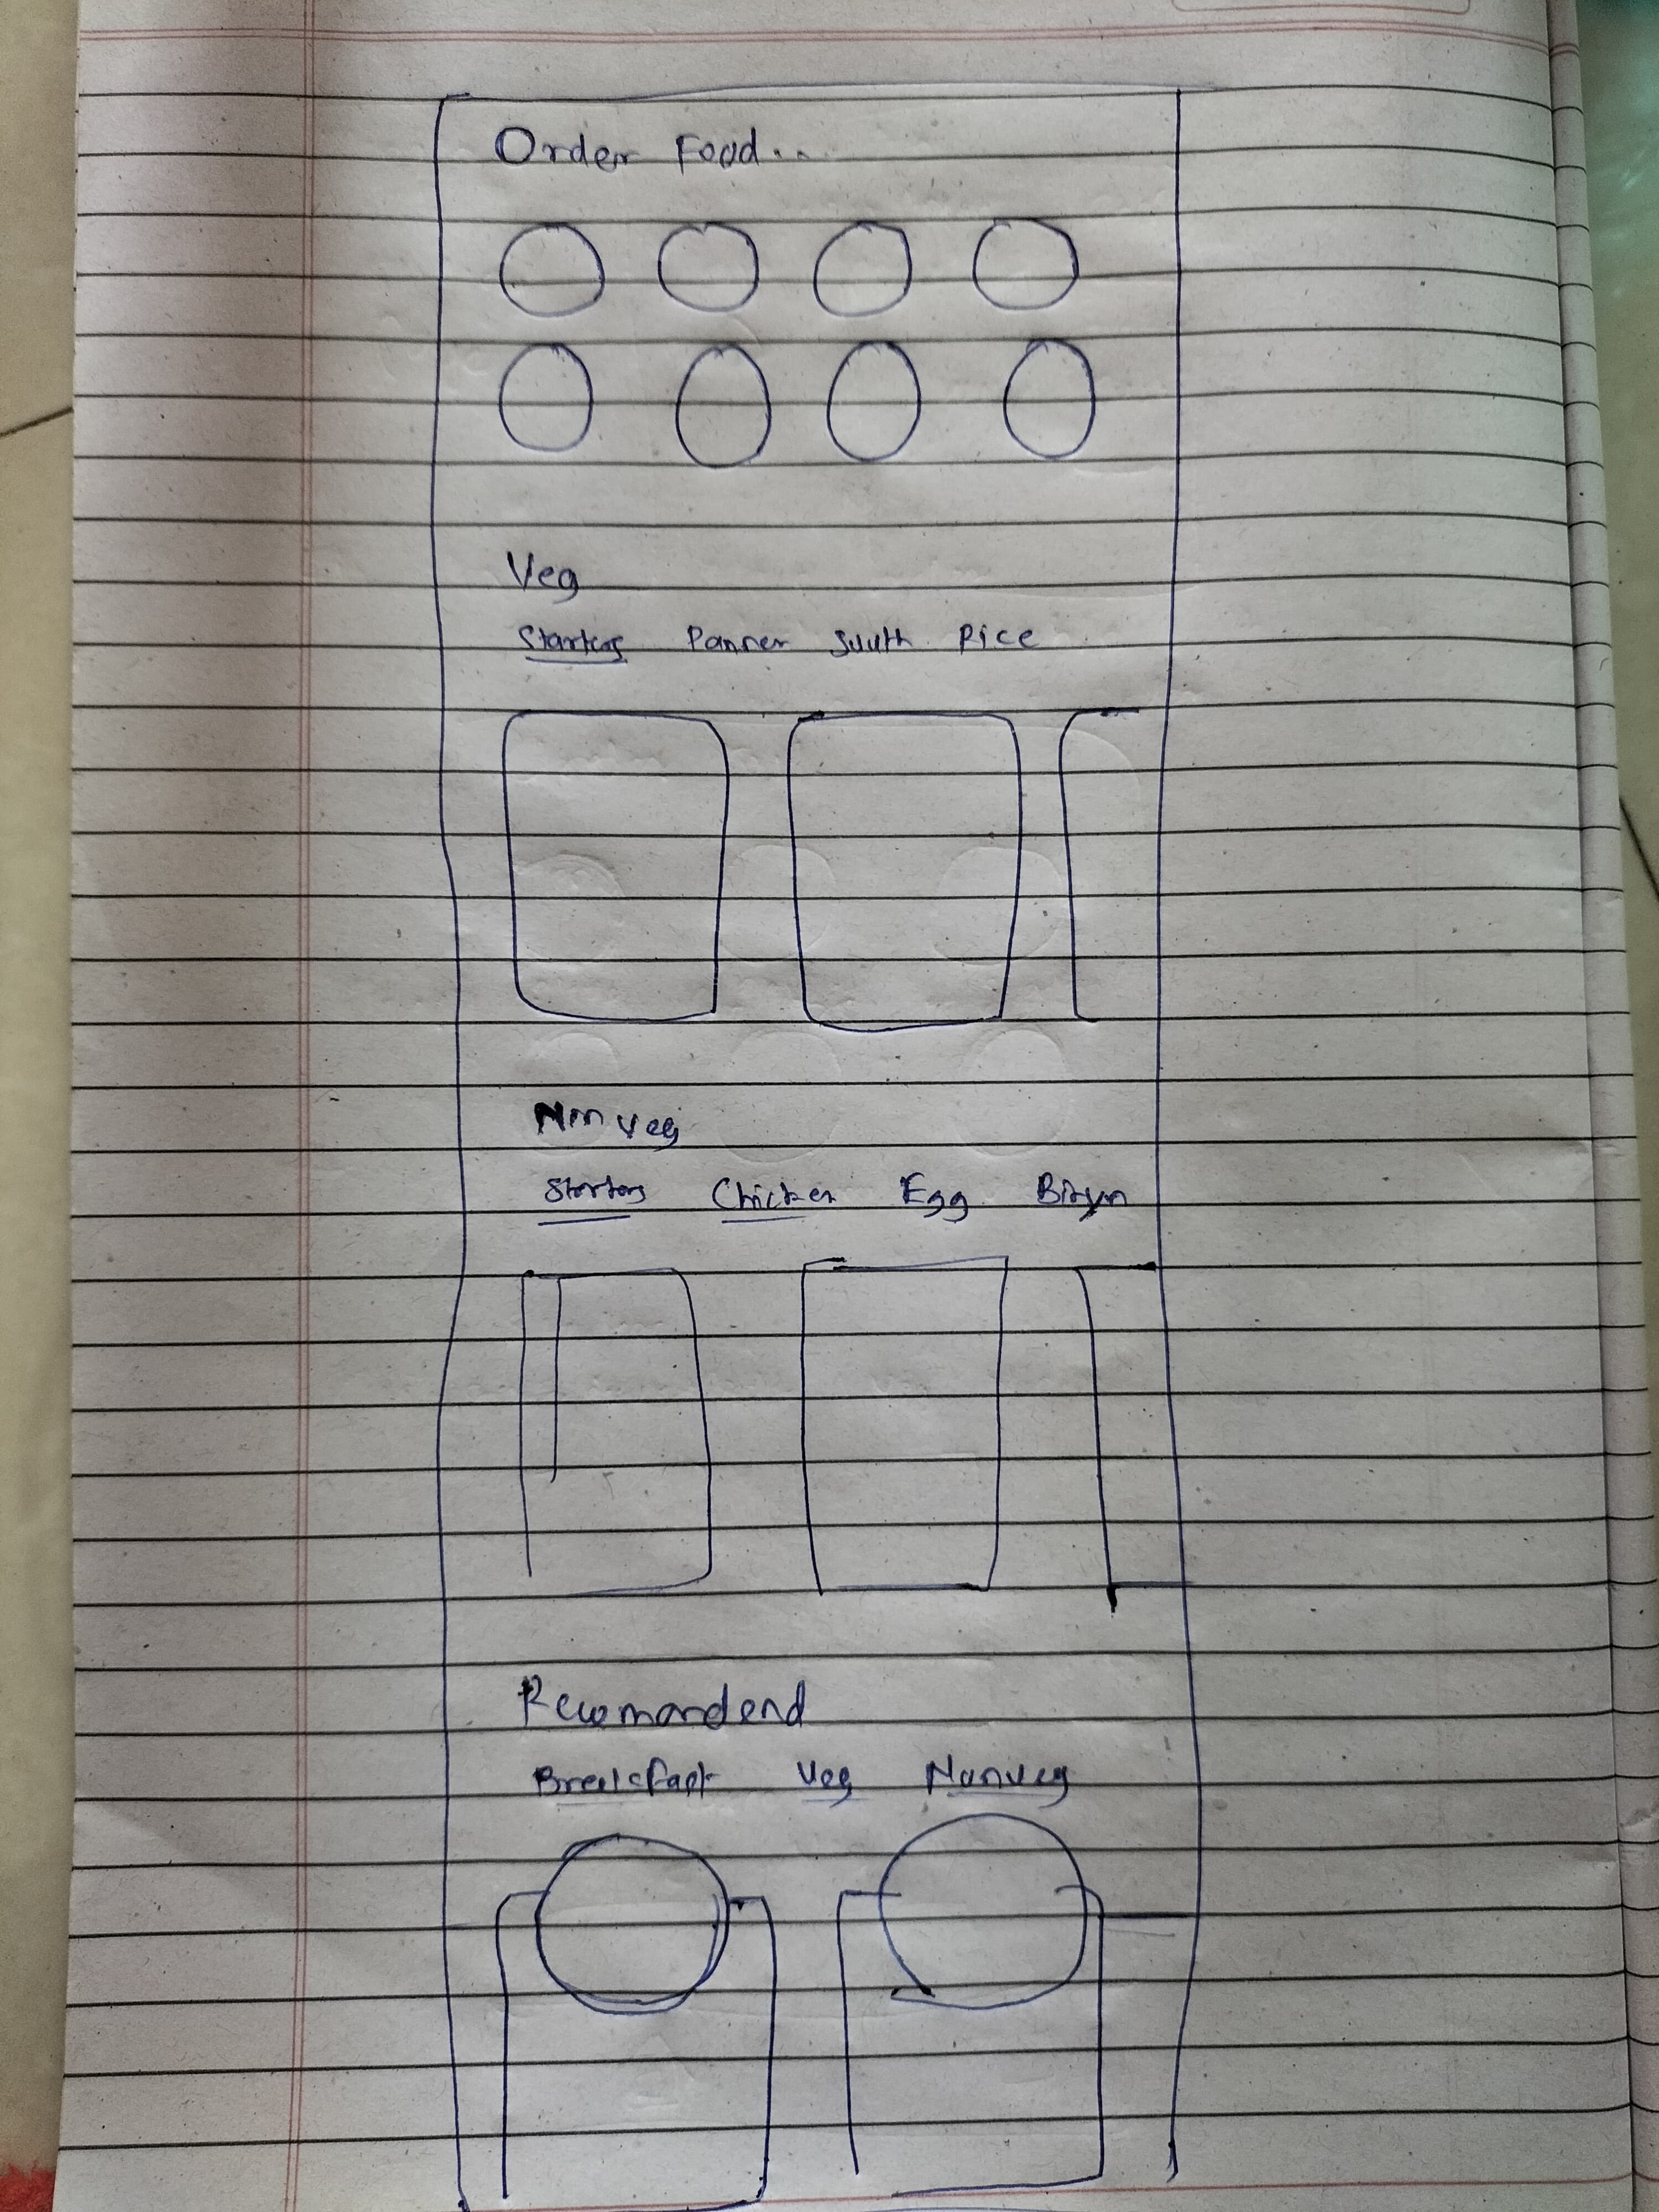 Order Food..
Veg
Starters Panner South Rice
Non veg
Starters Chicken Egg
Recomandend
Breakfast Veg Nonveg